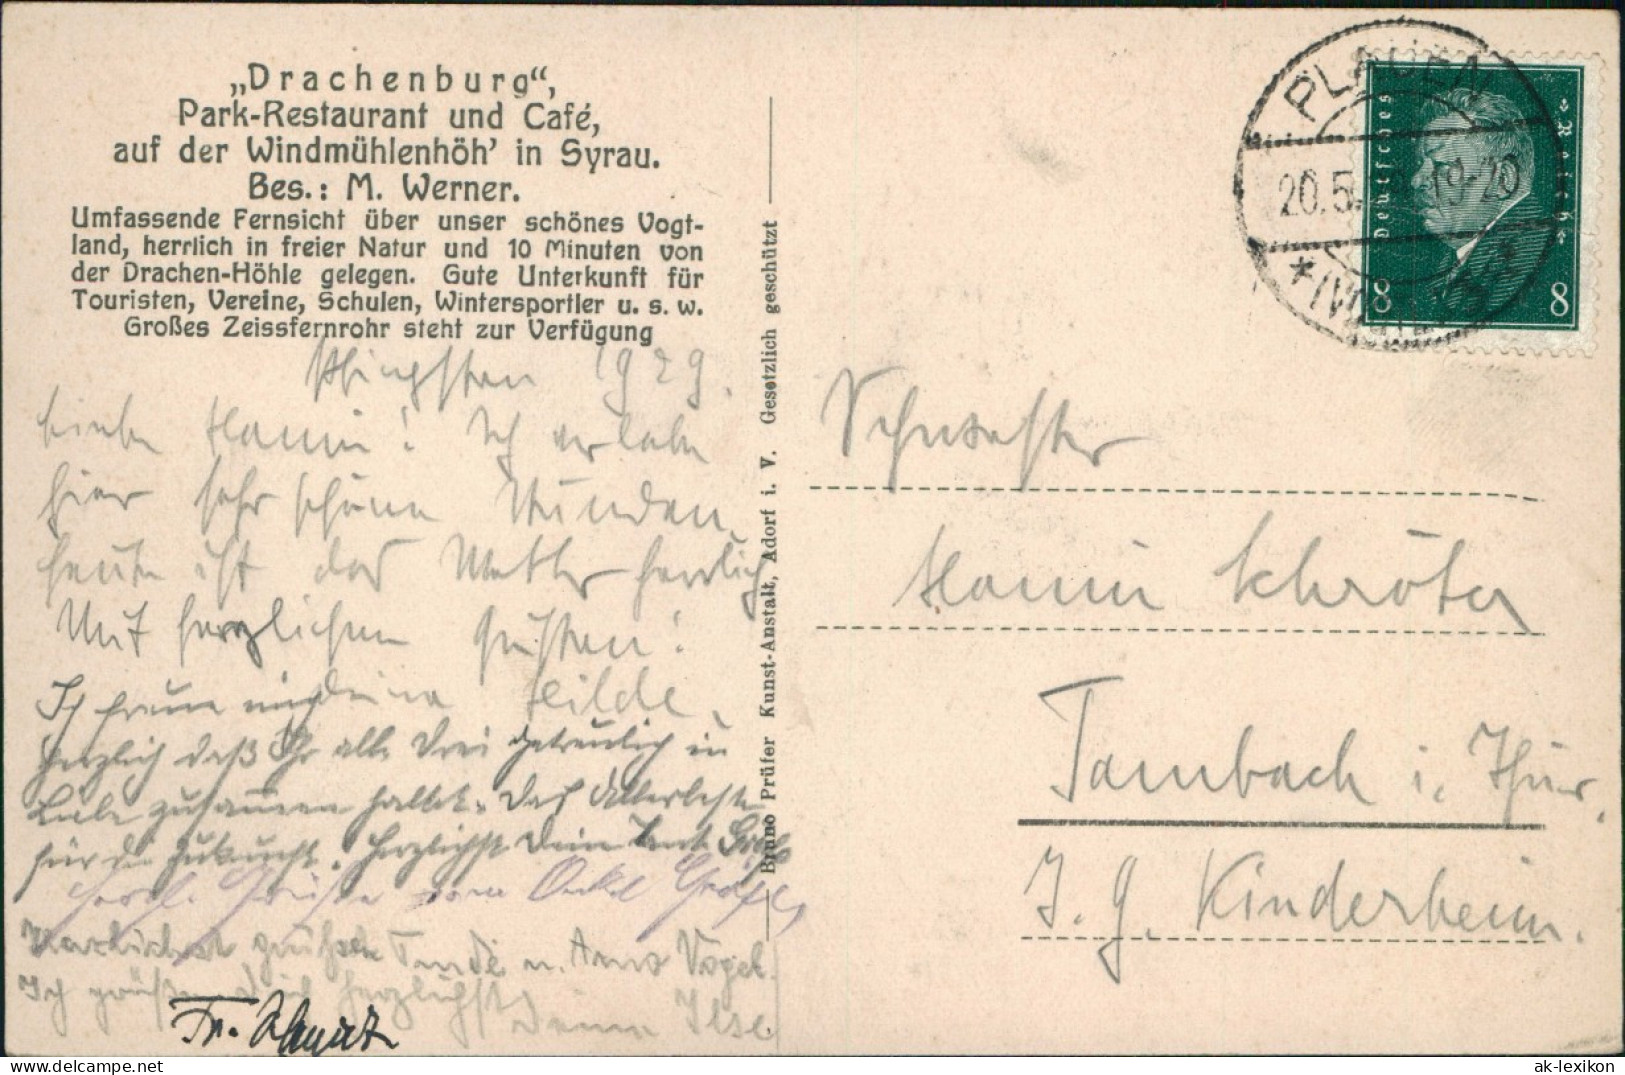 „Drachenburg“,
Park-Restaurant und Café,
auf der Windmühlenhöh’ in Syrau.
Bes.: M. Werner.
Umfassende Fernsicht über unser schönes Vogt-
land, herrlich in freier Natur und 10 Minuten von
der Drachen-Höhle gelegen. Gute Unterkunft für
Touristen, Vereine, Schulen, Wintersportler u. s. w.
Großes Zeissfernrohr steht zur Verfügung
Pfingsten 1929.
Liebe Hanni! Ich verlebe
hier sehr schöne Stunden,
heute ist das Wetter herrlich
Mit herzlichen Grüßen!
deine Hilde.
Ich freue mich
herzlich daß Ihr alle drei getreulich in
Liebe zusammen haltet. Das Allerbeste
für die Zukunft. Herzlichst Deine Tante
Herzl. Grüße vom Onkel
Herzlichst grüßen u. Arno Vogel.
Ich grüße dich herzlichst
Deine Ilse.
Fr.
Bruno Prüfer Kunst-Anstalt, Adorf i. V. Gesetzlich geschützt
PLAUEN
20.5. 19-20
* (VOGTL)
Deutsches Reich
8 8
Schwester
Hanni Schröter
Tambach i. Thür.
J. G. Kinderheim.
ak-ansichtskarten.de
ak-lexikon